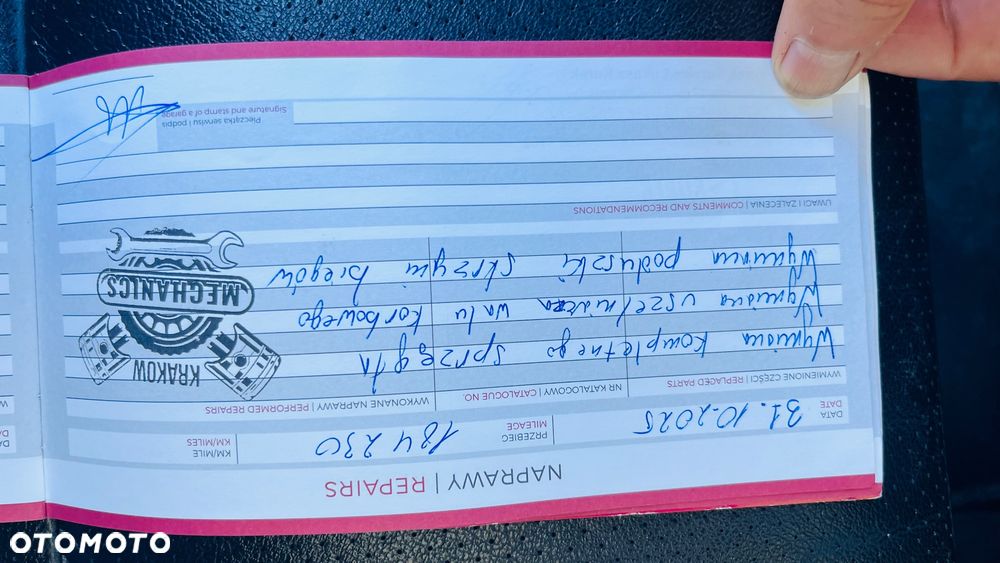 NAPRAWY | REPAIRS
DATA
DATE
31.10.2025
PRZEBIEG
MILEAGE
184 230
KM/MILE
KM/MILES
WYMIENIONE CZĘŚCI | REPLACED PARTS
NR KATALOGOWY | CATALOGUE NO.
WYKONANE NAPRAWY | PERFORMED REPAIRS
Wymiana kompletnego sprzęgła
Wymiana uszelniacza wału korbowego
Wymiana poduszki skrzyni biegów
KRAKOW
MECHANICS
UWAGI I ZALECENIA | COMMENTS AND RECOMMENDATIONS
Pieczątka serwisu i podpis
Signature and stamp of a garage
OTOMOTO